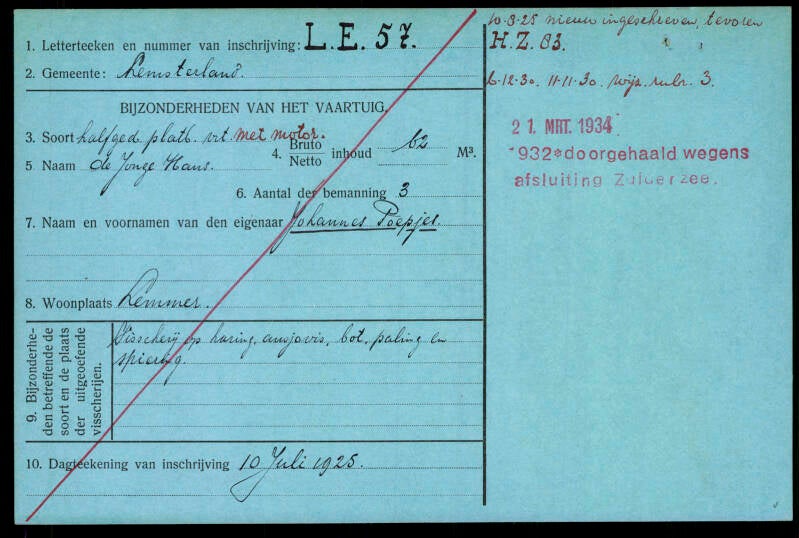 1. Letterteeken en nummer van inschrijving: L.E. 57.
2. Gemeente: Lemsterland.
BIJZONDERHEDEN VAN HET VAARTUIG.
3. Soort halfged. platb. vrt met motor.
4. Bruto Netto inhoud 62 M³.
5 Naam de Jonge Hans.
6. Aantal der bemanning 3
7. Naam en voornamen van den eigenaar Johannes Poepjes.
8. Woonplaats Lemmer.
9. Bijzonderhe-
den betreffende de
soort en de plaats
der uitgeoefende
visscherijen.
Visscherij op haring, ansjovis, bot, paling en
spiering.
10. Dagteekening van inschrijving 10 Juli 1925.
10-8-25 nieuw ingeschreven, tevoren
H.Z. 83.
6-12-30. 11-11-30. wijz. rubr. 3.
21. MRT. 1934
1932 doorgehaald wegens
afsluiting Zuiderzee.